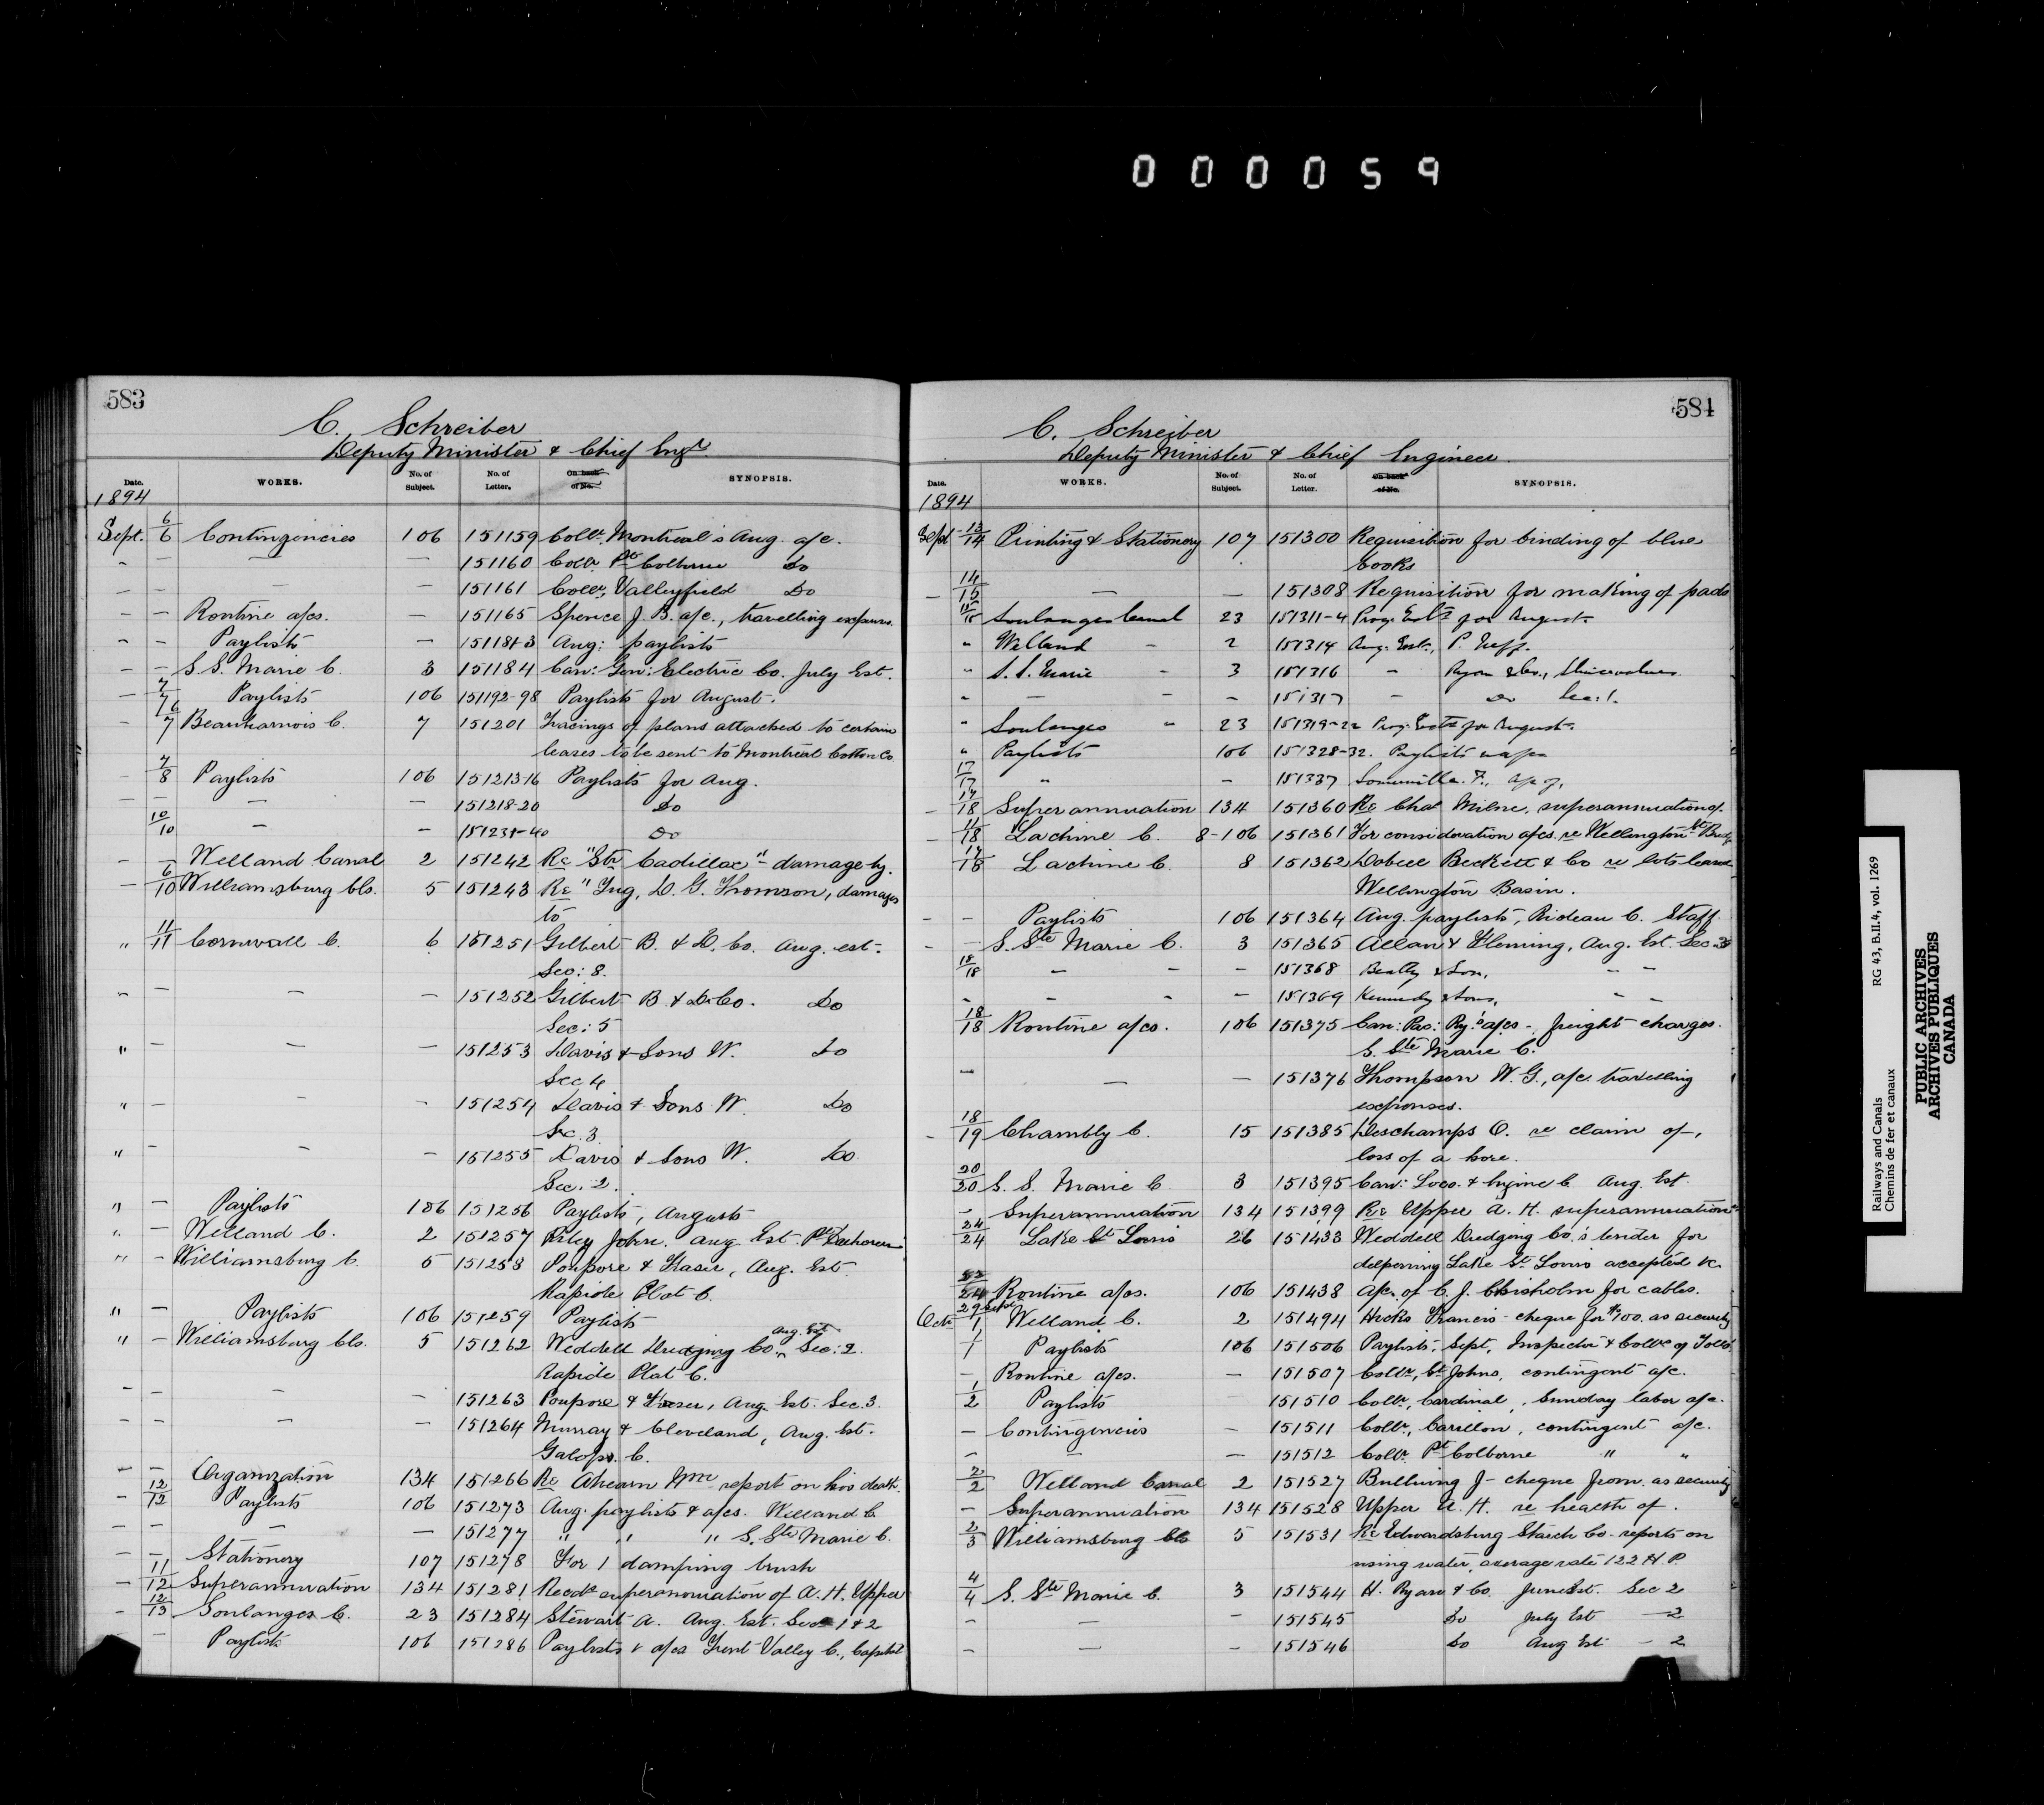 000059
583
C. Schreiber
Deputy Minister & Chief Engr
Date. WORKS. No. of Subject. No. of Letter. On back of No. SYNOPSIS.
1894
Sept. 6/6 Contingencies 106 151159 Collr. Montreal's Aug. a/c.
" — — — 151160 Collr. Pt Colborne Do
— — — 151161 Collr. Valleyfield Do
— — Routine a/cs. — 151165 Spence J. B. a/c., travelling expenses.
— — Paylists — 151184-3 Aug: paylists
— — S. S. Marie C. 3 151184 Can: Gen: Electric Co. July Est.
— 7/7 Paylists 106 151192-98 Paylists for August.
— 6/7 Beauharnois C. 7 151201 Tracings of plans attached to certain
leases to be sent to Montreal Cotton Co
— 7/8 Paylists 106 151213-16 Paylists for Aug.
— — — — 151218-20 Do
10/10 — — 151231-40 Do
— — Welland Canal 2 151242 Re "Str Cadillac" - damage by.
— 6/10 Williamsburg Cls. 5 151243 Re "Tug, D. G. Thomson, damages
to
" 11/11 Cornwall C. 6 151251 Gilbert B. & D. Co. Aug. est.
Sec: 8.
" — — — 151252 Gilbert B & D. Co. Do
Sec: 5
" — — — 151253 Davis & Sons W. Do
Sec 4
" — — — 151254 Davis & Sons W. Do
Sec. 3
" — — 151255 Davis & Sons W. Do
Sec. 2.
" — Paylists 106 151256 Paylists, Augusts
" — Welland C. 2 151257 Riley John. Aug Est. Pt Dalhousie
" — Williamsburg C. 5 151258 Poupore & Fraser, Aug. Est.
Rapide Plat C.
" — Paylists 106 151259 Paylists
" — Williamsburg Cls. 5 151262 Weddell Dredging Co. Aug. Est. Sec: 2.
Rapide Plat C.
— — — — 151263 Poupore & Fraser, Aug. Est. Sec. 3.
— — — — 151264 Murray & Cleveland, Aug. Est.
Galops. C.
— — Organization 134 151266 Re Ahearn Wm report on his death.
— 12/12 Paylists 106 151273 Aug. paylists & a/cs. Welland C.
— — — — 151277 " " " S. Ste Marie C.
— — Stationery 107 151278 For 1 damping brush
— 11/12 Superannuation 134 151281 Recds superannuation of A. H. Upper
— 12/13 Soulanges C. 23 151284 Stewart A. Aug. Est. Sec 1 & 2
— Paylists 106 151286 Paylists & a/cs Trent Valley C., Capital
584
C. Schreiber
Deputy Minister & Chief Engineer
Date. WORKS. No. of Subject. No. of Letter. On back of No. SYNOPSIS.
1894
Sept 13/14 Printing & Stationery 107 151300 Requisition for binding of blue
books
— 14/15 — — 151308 Requisition for making of pads
15/15 Soulanges Canal 23 151311-4 Prog: Ests for August.
" Welland — 2 151314 Aug. Est., P. Neff.
" S. S. Marie — 3 151316 — Ryan & Co.,
" — — — 151317 — Do Sec: 1.
" Soulanges " 23 151319-22 Prog: Ests for August.
" Paylists 106 151328-32. Paylists
17/17 " — 151337 Somerville. F., a/c of,
— 17/18 Superannuation 134 151360 Re Chas Milne, superannuation of.
— 11/18 Lachine C. 8-106 151361 For consideration a/cs. re Wellington St Bridge
17/18 Lachine C. 8 151362 Dobell Beckett & Co re lots leased
Wellington Basin.
— — Paylists 106 151364 Aug. paylists, Rideau C. Staff
— — S. Ste Marie C. 3 151365 Allan & Fleming, Aug. Est. Sec 3
18/18 — — — 151368 Beatty & Son, — —
— — — — 151369 Kennedy & Sons, — —
18/18 Routine a/cs. 106 151375 Can: Pac: Ry's a/cs - freight charges.
S. Ste Marie C.
— — — 151376 Thompson W. G., a/c. travelling
expenses.
— 18/19 Chambly C. 15 151385 Deschamps O. re claim of —,
loss of a horse.
20/20 S. S. Marie C 3 151395 Can: Loco. & Engine C Aug. Est.
— Superannuation 134 151399 Re Upper A. H. superannuation
24/24 Lake St Louis 26 151433 Weddell Dredging Co.'s tender for
deepening Lake St. Louis accepted &c.
22/24 Routine a/cs. 106 151438 a/c. of C. J. Chisholm for cables.
Oct. 29 Sept/1 Welland C. 2 151494 Hicks Francis - cheque for $100. as security
1/1 Paylists 106 151506 Paylists, Sept, Inspector & Collr of Tolls
— Routine a/cs. — 151507 Collr., St Johns, contingent a/c.
1/2 Paylists 151510 Collr., Cardinal, Sunday labor a/c.
— Contingencies — 151511 Collr., Carillon, contingent a/c.
— — — 151512 Collr. Pt Colborne " "
2/2 Welland Canal 2 151527 J - cheque from. as security
— Superannuation 134 151528 Upper A. H. re health of.
2/3 Williamsburg Cls 5 151531 Re Edwardsburg Starch Co. reports on
using water, average rate 122 H. P.
4/4 S. Ste Marie C. 3 151544 H. Ryan & Co. June Est. Sec 2
— — — 151545 Do July Est — 2
— — — 151546 Do Aug Est — 2
Railways and Canals RG 43, B.II.4, vol. 1269
Chemins de fer et canaux
PUBLIC ARCHIVES
ARCHIVES PUBLIQUES
CANADA